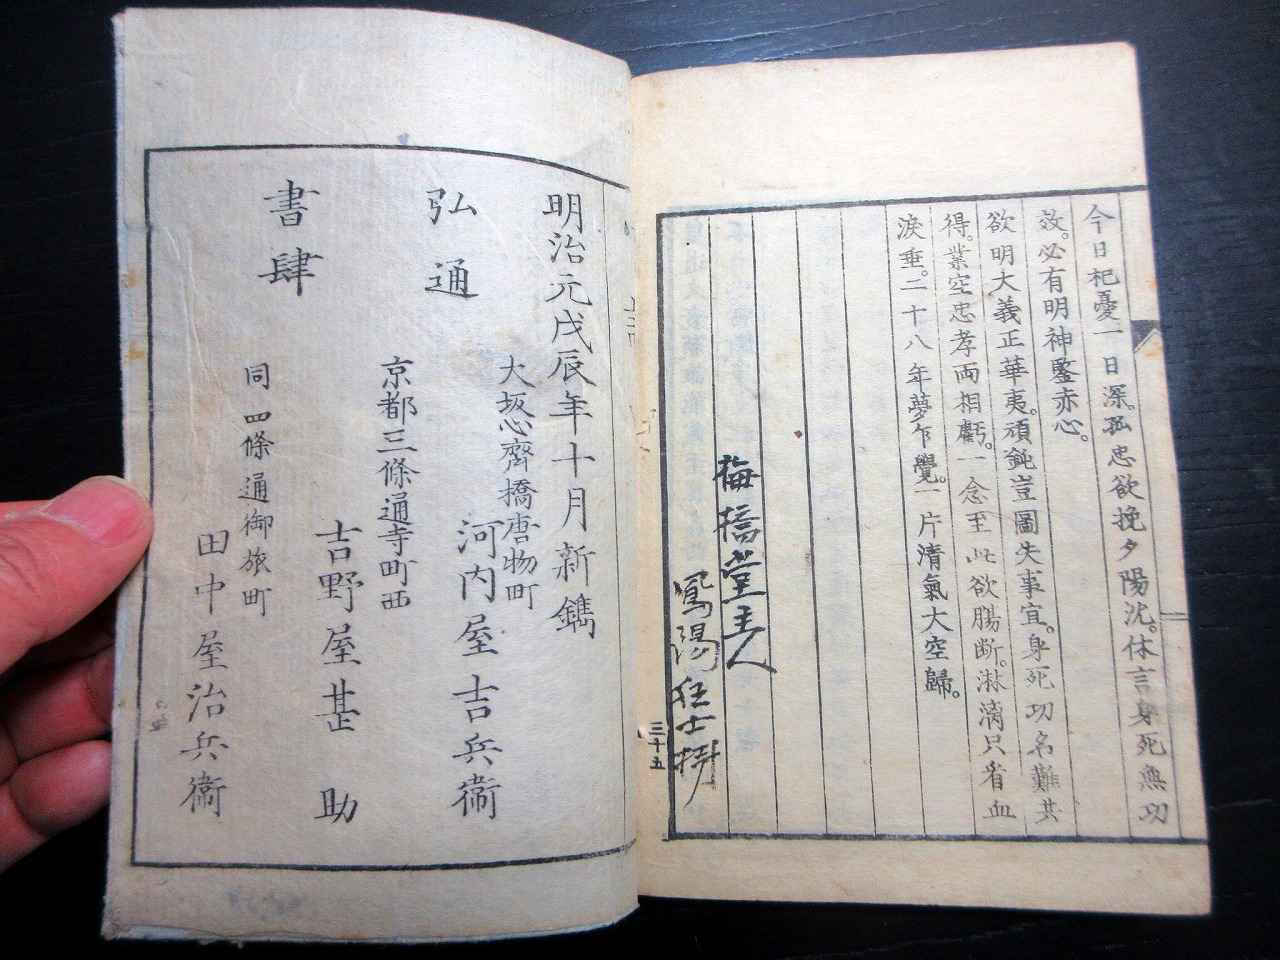 今日杞憂一日深。孤忠欲挽夕陽沈。休言身死無功
效。必有明神鑒赤心。
欲明大義正華夷。頑鈍豈圖失事宜。身死功名難共
得。業空忠孝両相虧。一念至此欲腸断。淋漓只看血
淚垂。二十八年夢乍覺。一片清氣大空歸。
梅橋堂主人
鳳陽狂士
三十五
明治元戊辰年十月新鐫
弘通
書肆
大坂心齊橋唐物町
河内屋吉兵衞
京都三條通寺町西
吉野屋甚助
同四條通御旅町
田中屋治兵衞